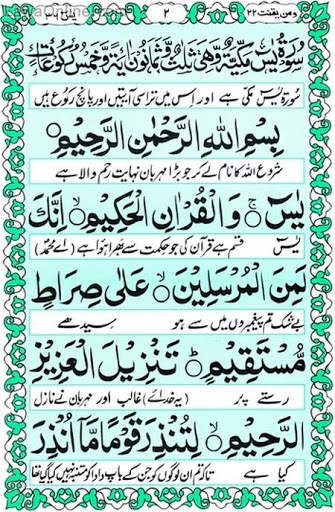 ومن یقنت ۲۲
۲
سُوْرَةُ يٰسٓ مَكِّيَّةٌ وَّهِيَ ثَلٰثٌ وَّثَمَانُوْنَ اٰيَةً وَّخَمْسُ رُكُوْعَاتٍ
سورۃ یٰس مکی ہے اور اس میں تراسی آیتیں اور پانچ رکوع ہیں
بِسْمِ اللهِ الرَّحْمٰنِ الرَّحِيْمِ
شروع اللہ کا نام لے کر جو بڑا مہربان نہایت رحم والا ہے
يٰسٓ ۚ وَالْقُرْاٰنِ الْحَكِيْمِ ۙ اِنَّكَ
یٰس قسم ہے قرآن کی جو حکمت سے بھرا ہوا ہے (اے محمدؐ)
لَمِنَ الْمُرْسَلِيْنَ ۙ عَلٰى صِرَاطٍ
بے شک تم پیغمبروں میں سے ہو سیدھے
مُّسْتَقِيْمٍ ؕ تَنْزِيْلَ الْعَزِيْزِ
رستے پر (یہ خدائے) غالب اور مہربان نے نازل
الرَّحِيْمِ ۙ لِتُنْذِرَ قَوْمًا مَّاۤ اُنْذِرَ
کیا ہے تاکہ تم ان لوگوں کو جن کے باپ دادا کو متنبہ نہیں کیا گیا تھا